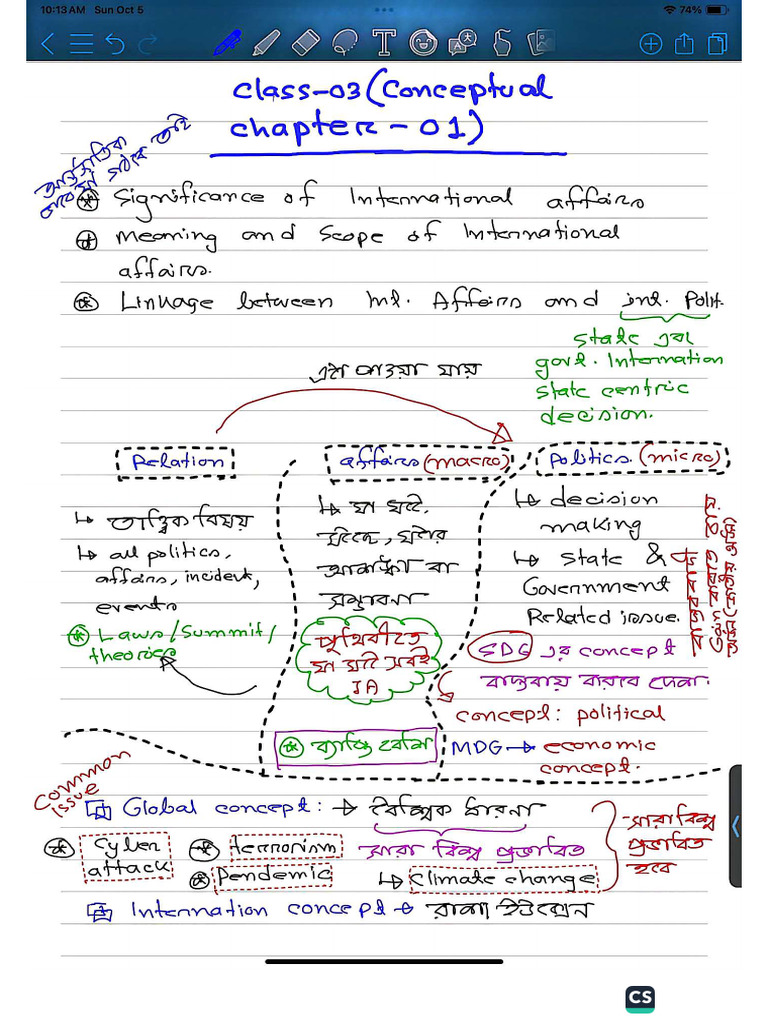 10:13 AM Sun Oct 5
74%
Class-03 (Conceptual
chapter - 01)
Significance of International affairs
Meaning and Scope of International
affairs.
Linkage between Int. Affairs and int. Polit.
state এবং
govt. Internation
state centric
decision.
পাওয়া যায়
Relation
affairs (macro)
Politics (micro)
↳ তাত্ত্বিক বিষয়
↳ all politics,
affairs, incident,
events
Laws/Summit/
theories
↳ যা ঘটে,
ঘটছে, ঘটার
আকাঙ্ক্ষা বা
সম্ভাবনা
পৃথিবীতে
যা ঘটে সবই
IA
↳ decision
making
↳ State &
Government
Related issue.
SDG এর concept
বাস্তবায় করবে দেশ.
concept: political
MDG → economic
concept.
Common
issue
Global concept: → বৈশ্বিক ধারনা
Cyber
attack
terrorism
Pendemic
সারা বিশ্ব প্রভাবিত
↳ Climate change
সারা বিশ্ব
প্রভাবিত
হবে
Internation concept →
CS